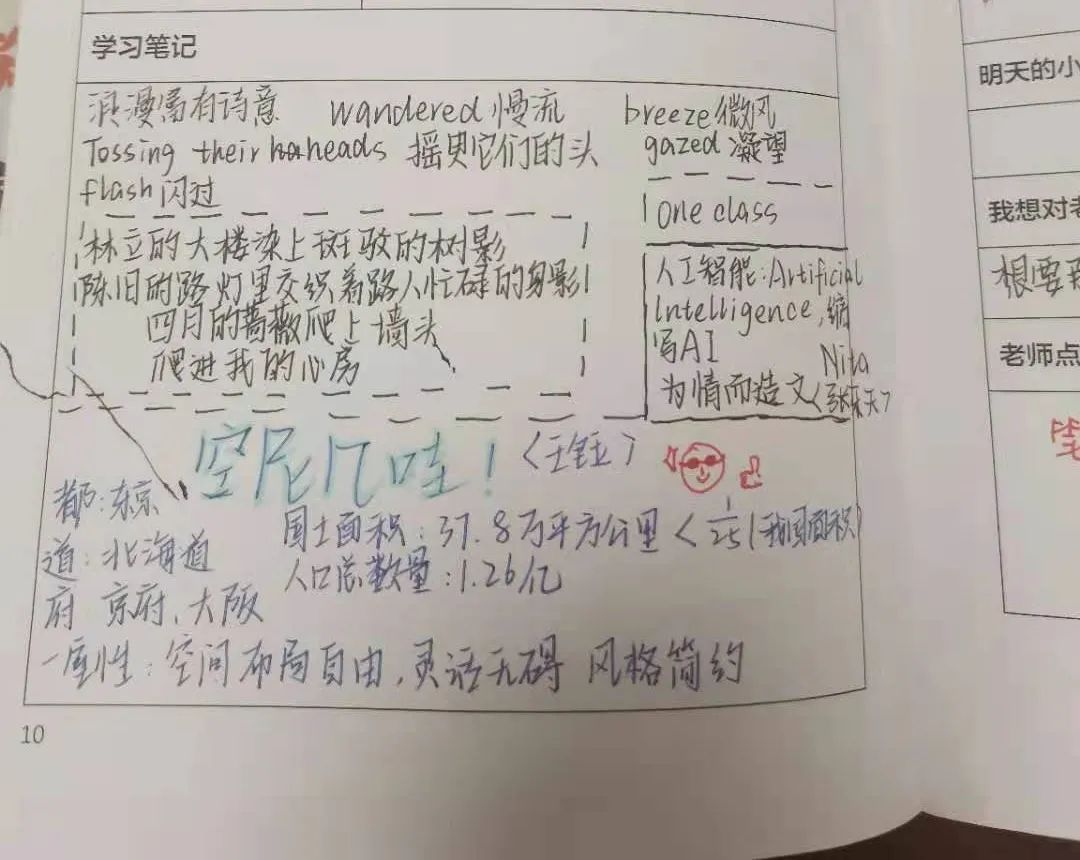 学习笔记
浪漫富有诗意 wandered 慢流 breeze 微风
Tossing their heads 摇曳它们的头 gazed 凝望
flash 闪过
one class
林立的大楼染上斑驳的树影
陈旧的路灯里交织着路人忙碌的身影
四月的蔷薇爬上墙头
爬进我的心房
人工智能:Artificial
Intelligence,缩
写AI
Nita
为情而造文
空尼几哇!
都:东京
国土面积:37.8万平方公里<1/25(我国面积)
道:北海道
人口总数量:1.26亿
府 京府、大阪
一座性:空间布局自由,灵活无碍 风格简约
10
明天的小
我想对老
根要
老师点